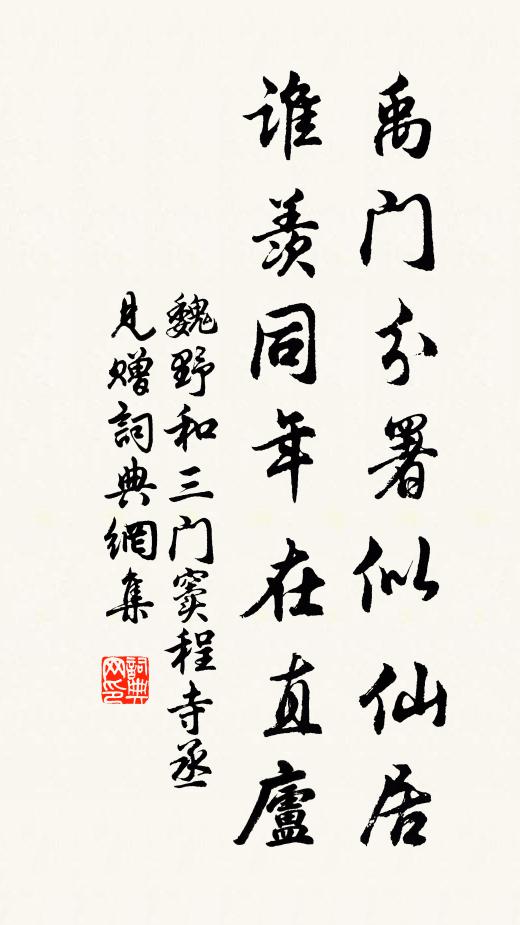 禹门分署似仙居
谁羡同年在直廬
魏野和三门窦程寺丞
见赠詞典網集
詞典网印